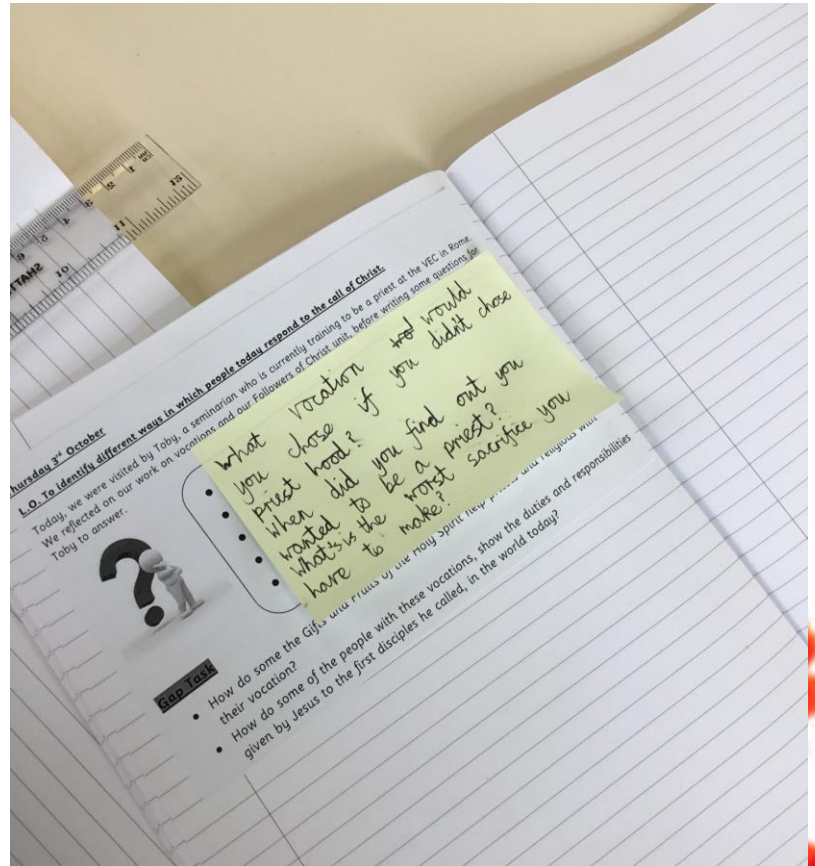 Thursday 3rd October
L.O. To identify different ways in which people today respond to the call of Christ.
Today, we were visited by Toby, a seminarian who is currently training to be a priest at the VEC in Rome.
We reflected on our work on vocations and our Followers of Christ unit, before writing some questions for
Toby to answer.
What vocation would
you chose if you didn't chose
priest hood?
When did you find out you
wanted to be a priest?
What's is the worst sacrifice you
have to make?
Gap Task
How do some the Gifts and Fruits of the Holy Spirit help priests and religious with
their vocation?
How do some of the people with these vocations, show the duties and responsibilities
given by Jesus to the first disciples he called, in the world today?
15
11
10